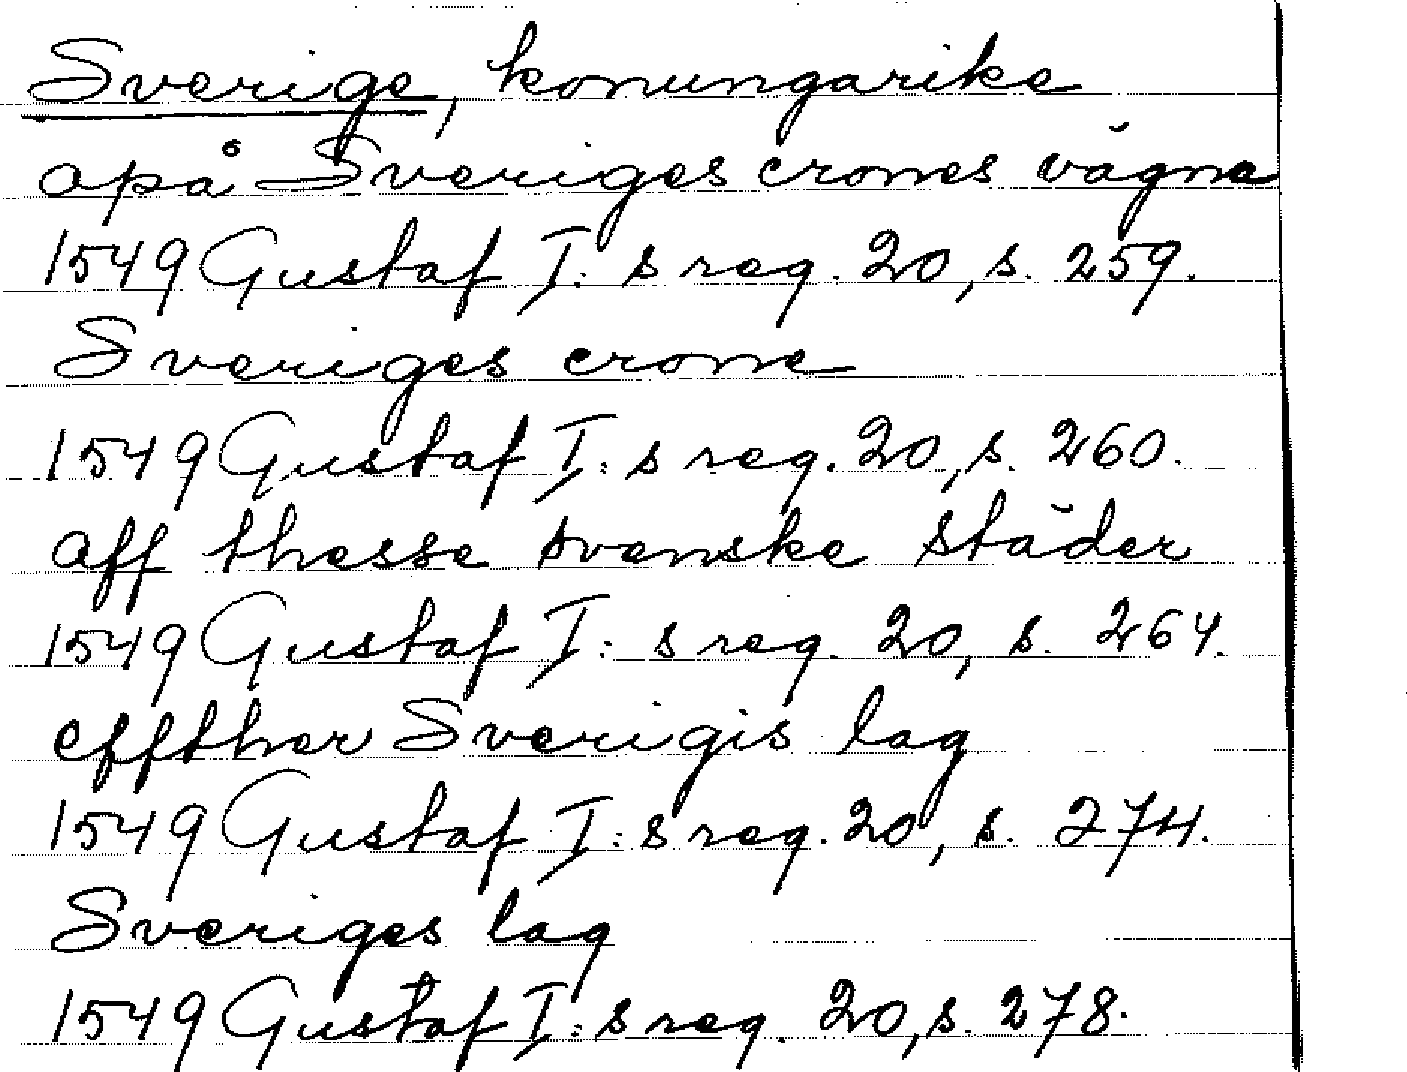 Sverige, konungarike
apå Sveriges crones vägne
1549 Gustaf I:s reg. 20, s. 259.
Sveriges crone
1549 Gustaf I:s reg. 20, s. 260.
aff thesse svenske städer
1549 Gustaf I:s reg. 20, s. 264.
effther Sverigis lag
1549 Gustaf I:s reg. 20, s. 274.
Sveriges lag
1549 Gustaf I:s reg. 20, s. 278.